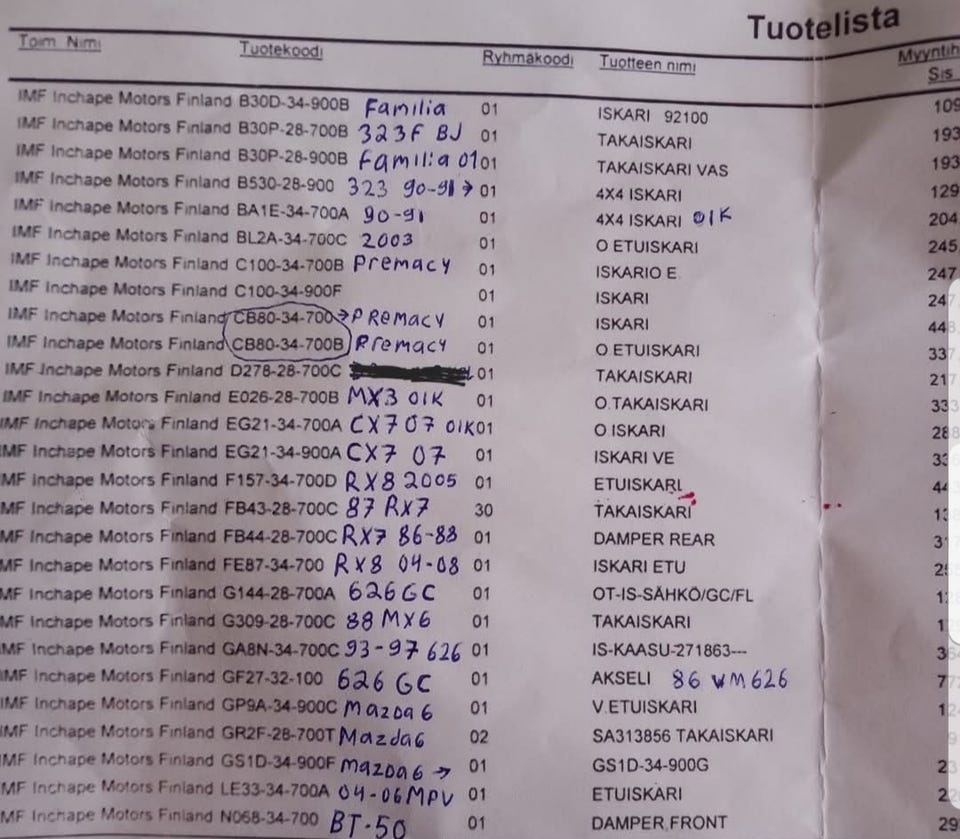 Tuotelista
Toim. Nimi Tuotekoodi Ryhmäkoodi Tuotteen nimi Myyntih
Sis
IMF Inchape Motors Finland B30D-34-900B Familia 01 ISKARI 92100 109
IMF Inchape Motors Finland B30P-28-700B 323F BJ 01 TAKAISKARI 193
IMF Inchape Motors Finland B30P-28-900B Familia 01 01 TAKAISKARI VAS 193
IMF Inchape Motors Finland B530-28-900 323 90-91 → 01 4X4 ISKARI 129
IMF Inchape Motors Finland BA1E-34-700A 90-91 01 4X4 ISKARI OIK 204
IMF Inchape Motors Finland BL2A-34-700C 2003 01 O ETUISKARI 245
IMF Inchape Motors Finland C100-34-700B Premacy 01 ISKARIO E. 247
IMF Inchape Motors Finland C100-34-900F 01 ISKARI 247
IMF Inchape Motors Finland CB80-34-700 → PRemacy 01 ISKARI 448
IMF Inchape Motors Finland CB80-34-700B Premacy 01 O ETUISKARI 337
IMF Inchape Motors Finland D278-28-700C 01 TAKAISKARI 217
IMF Inchape Motors Finland E026-28-700B MX3 OIK 01 O.TAKAISKARI 333
IMF Inchape Motors Finland EG21-34-700A CX7 07 OIK 01 O ISKARI 288
IMF Inchape Motors Finland EG21-34-900A CX7 07 01 ISKARI VE
IMF Inchape Motors Finland F157-34-700D RX8 2005 01 ETUISKARI
IMF Inchape Motors Finland FB43-28-700C 87 RX7 30 TAKAISKARI
IMF Inchape Motors Finland FB44-28-700C RX7 86-88 01 DAMPER REAR
IMF Inchape Motors Finland FE87-34-700 RX8 04-08 01 ISKARI ETU
MF Inchape Motors Finland G144-28-700A 626GC 01 OT-IS-SÄHKÖ/GC/FL
MF Inchape Motors Finland G309-28-700C 88 MX6 01 TAKAISKARI
MF Inchape Motors Finland GA8N-34-700C 93-97 626 01 IS-KAASU-271863---
MF Inchape Motors Finland GF27-32-100 626 GC 01 AKSELI 86 VM626
MF Inchape Motors Finland GP9A-34-900C Mazda6 01 V.ETUISKARI
MF Inchape Motors Finland GR2F-28-700T Mazda6 02 SA313856 TAKAISKARI
MF Inchape Motors Finland GS1D-34-900F Mazda6 → 01 GS1D-34-900G
MF Inchape Motors Finland LE33-34-700A 04-06MPV 01 ETUISKARI
MF Inchape Motors Finland N068-34-700 BT-50 01 DAMPER,FRONT